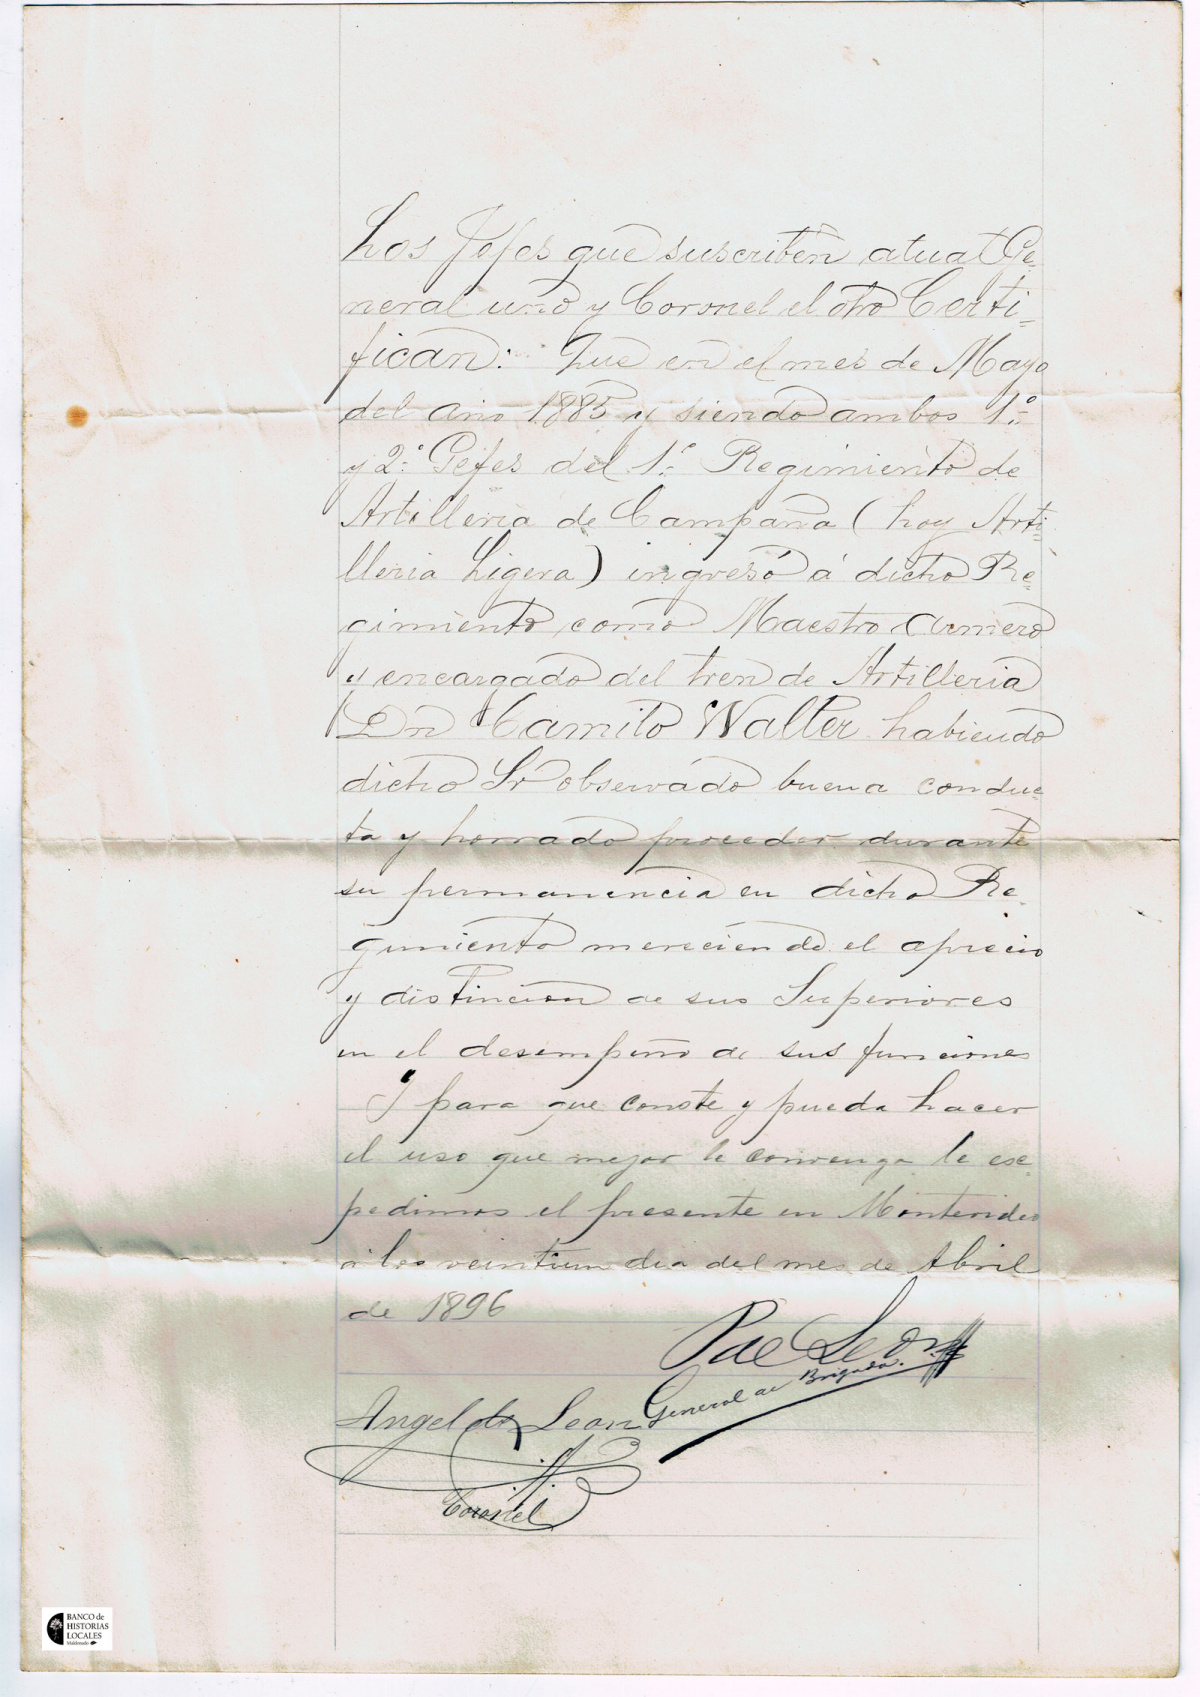 Los Jefes que suscriben atual Ge-
neral uno y Coronel el otro Certi-
fican: Que en el mes de Mayo
del año 1885 y siendo ambos 1.º
y 2.º Gefes del 1.º Regimiento de
Artilleria de Campaña (hoy Arti-
lleria Ligera) ingresó á dicho Re-
gimiento como Maestro Armero
y encargado del tren de Artilleria
Dn Camilo Walter habiendo
dicho Sr observado buena conduc-
ta y honrado proceder durante
su permanencia en dicho Re-
gimiento mereciendo el aprecio
y distincion de sus Superiores
en el desempeño de sus funciones
I para que conste y pueda hacer
el uso que mejor le convenga le es-
pedimos el presente en Montevideo
a los veintiun dia del mes de Abril
de 1896
Leon
General de Brigada.
Angel de Leon
Coronel
BANCO de
HISTORIAS
LOCALES
Maldonado